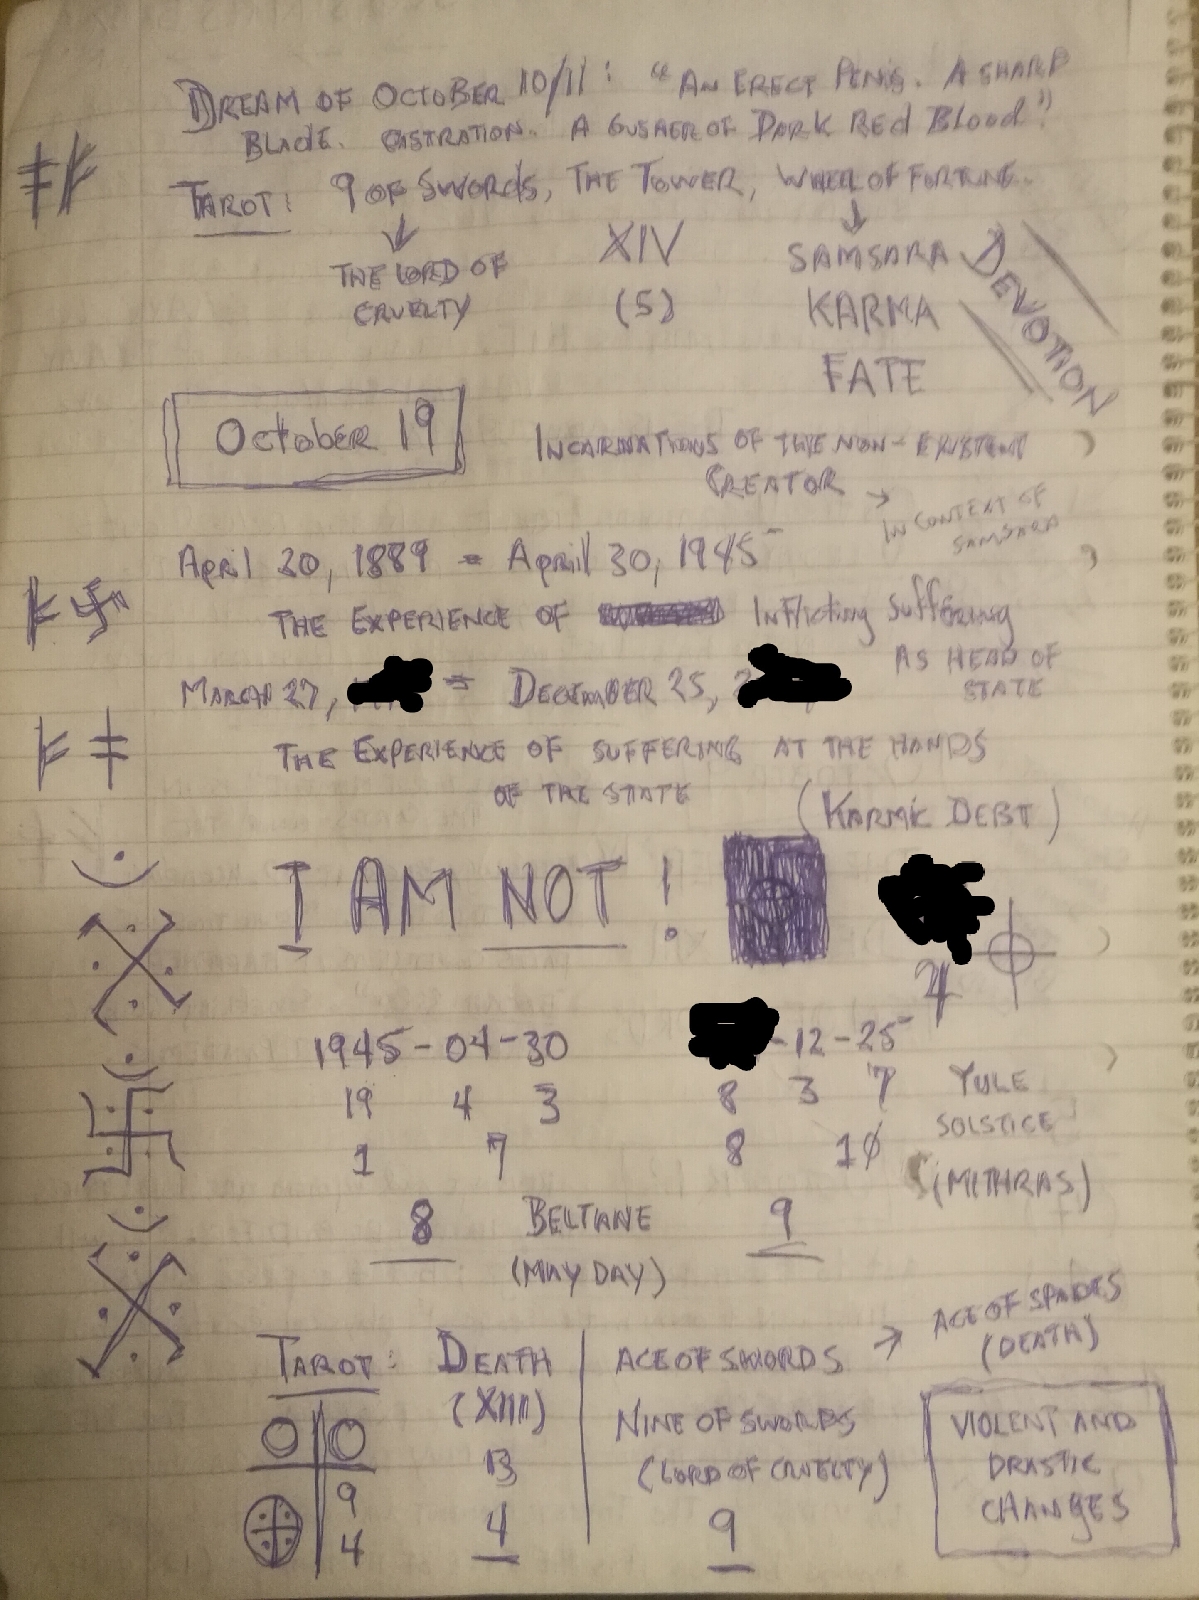 DREAM OF OCTOBER 10/11: "AN ERECT PENIS. A SHARP
BLADE. CASTRATION. A GUSHER OF DARK RED BLOOD".
TAROT: 9 OF SWORDS, THE TOWER, WHEEL OF FORTUNE.
THE LORD OF
CRUELTY
XIV
(5)
SAMSARA
KARMA
FATE
DEVOTION
OCTOBER 19
INCARNATIONS OF THE NON-EXISTENT
CREATOR →
IN CONTEXT OF
SAMSARA
April 20, 1889 = April 30, 1945
THE EXPERIENCE OF Inflicting Suffering
AS HEAD OF
STATE
MARCH 27, = DECEMBER 25, 2
THE EXPERIENCE OF SUFFERING AT THE HANDS
OF THE STATE
(KARMIC DEBT)
I AM NOT !
1945-04-30
19 4 3
1 7
8
BELTANE
(MAY DAY)
-12-25
8 3 7
8 10
9
YULE
SOLSTICE
(MITHRAS)
TAROT: DEATH
(XIII)
13
4
9
4
ACE OF SWORDS → ACE OF SPADES
(DEATH)
NINE OF SWORDS
(LORD OF CRUELTY)
9
VIOLENT AND
DRASTIC
CHANGES